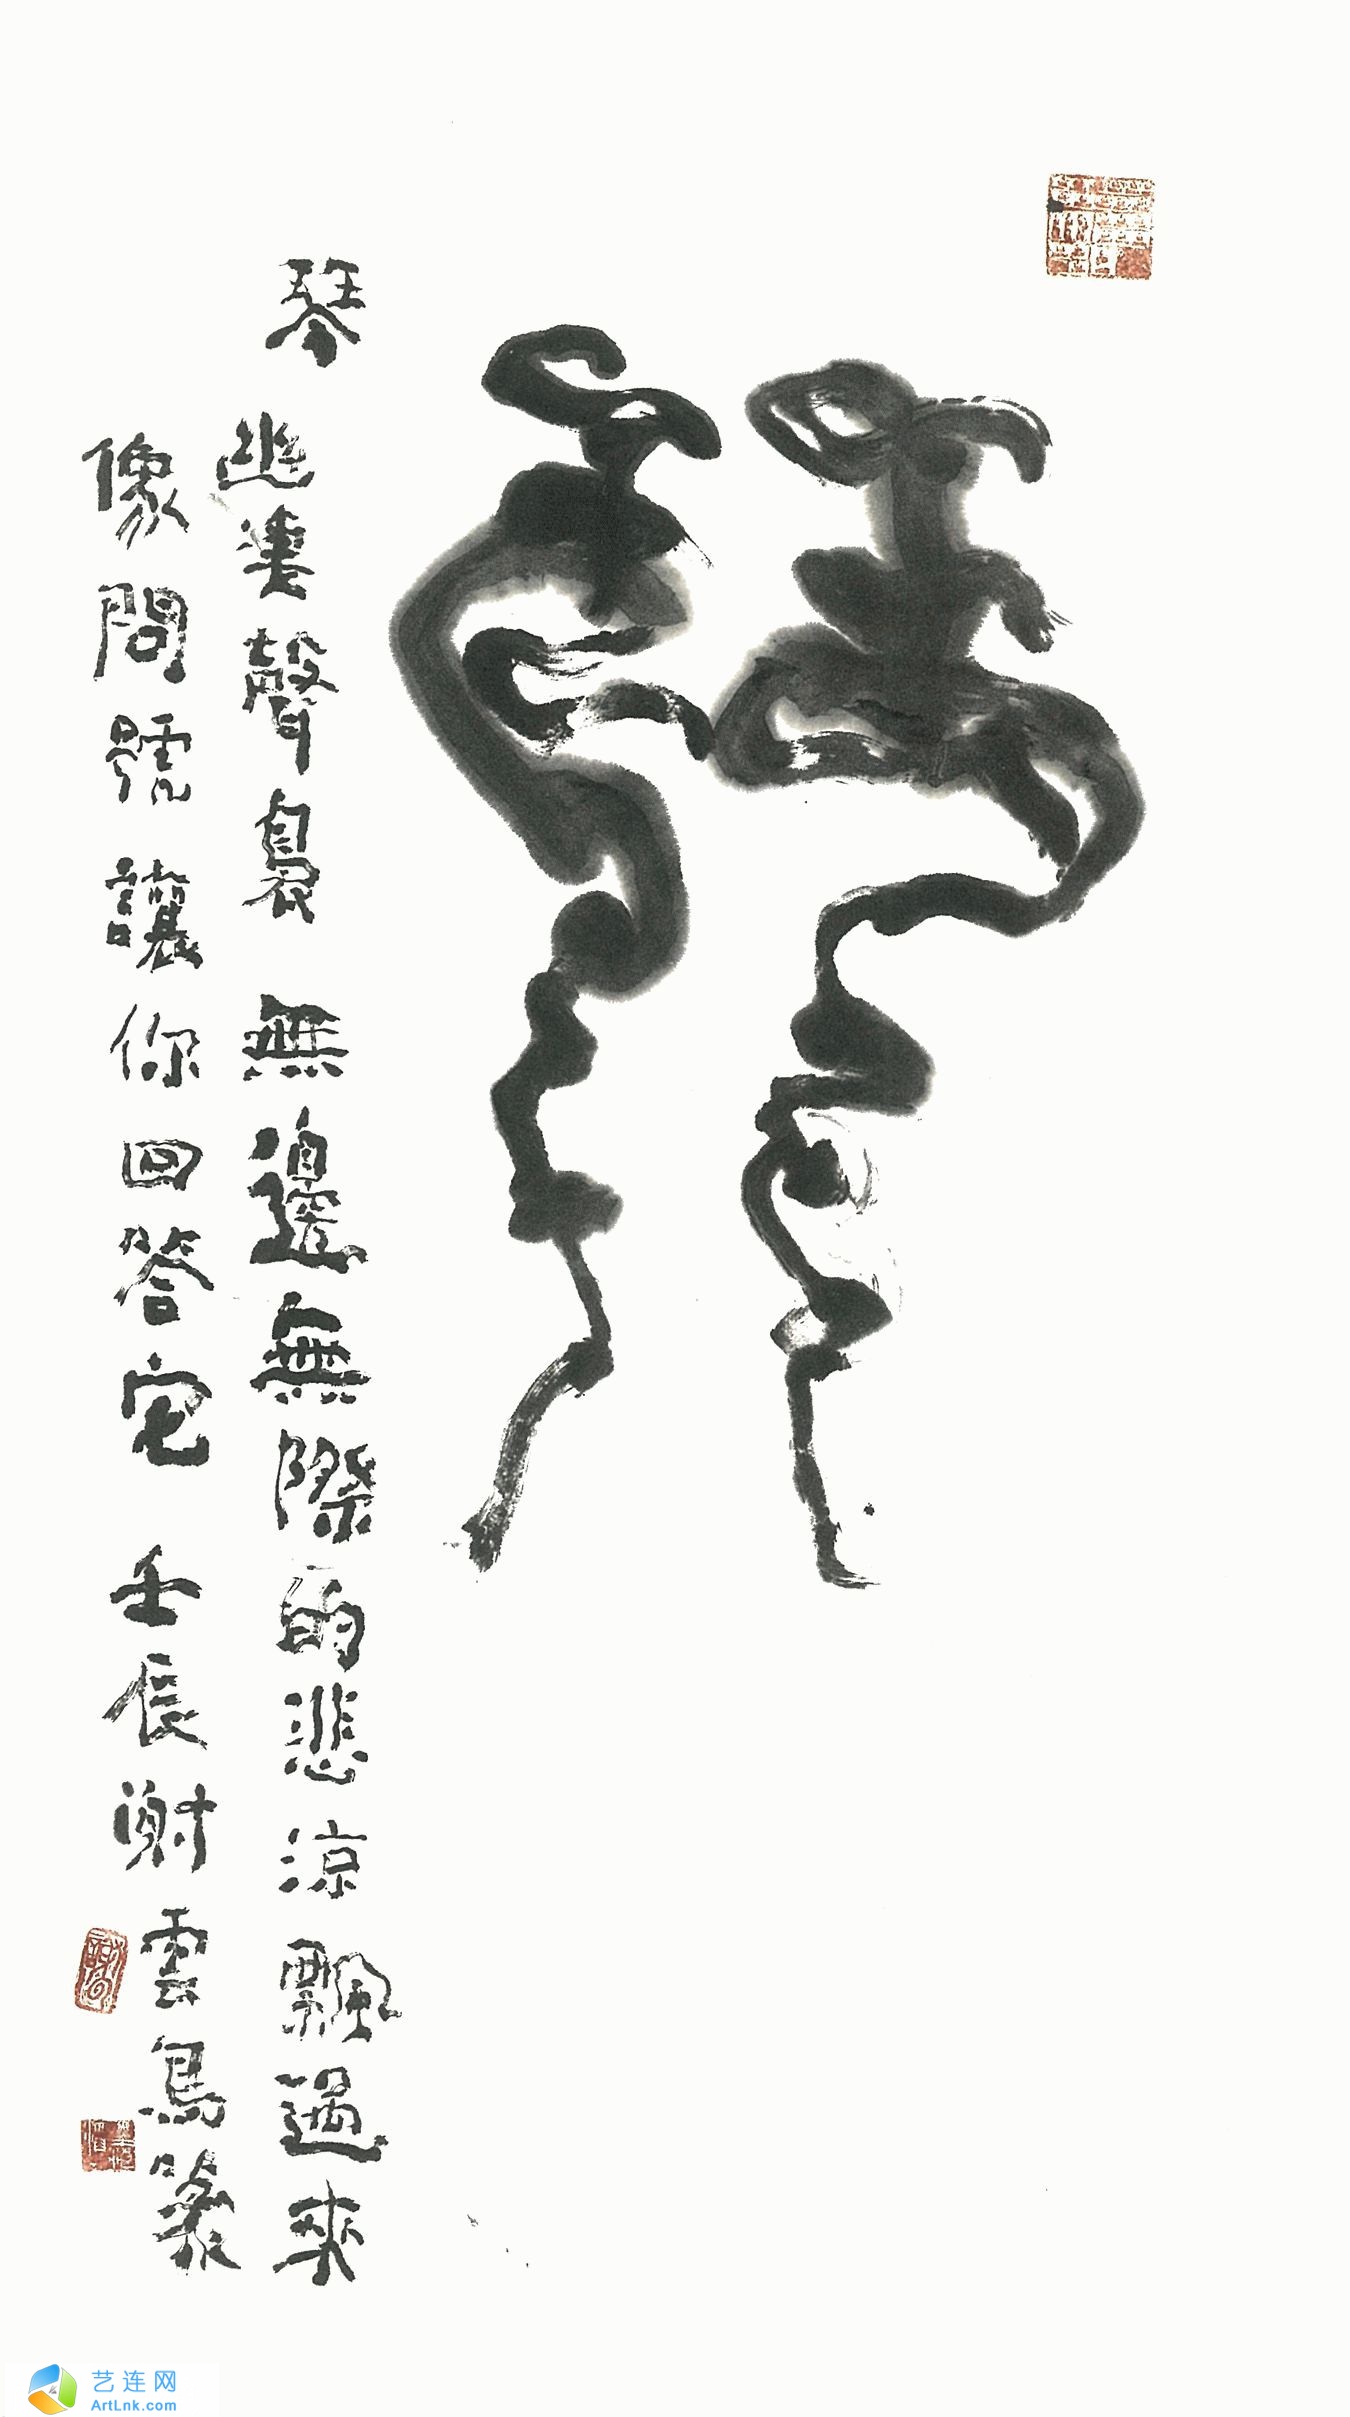 琴 幽淒聲裊 無邊無際的悲涼飄過來
像問號讓你回答它 壬辰謝雲鳥篆
艺连网
ArtLnk.com